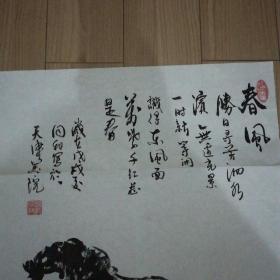 春風
勝日尋芳泗水
濱無邊光景
一時新等閒
識得東風面
萬紫千紅總
是春
歲在戊戌
同和寫於
天津美院